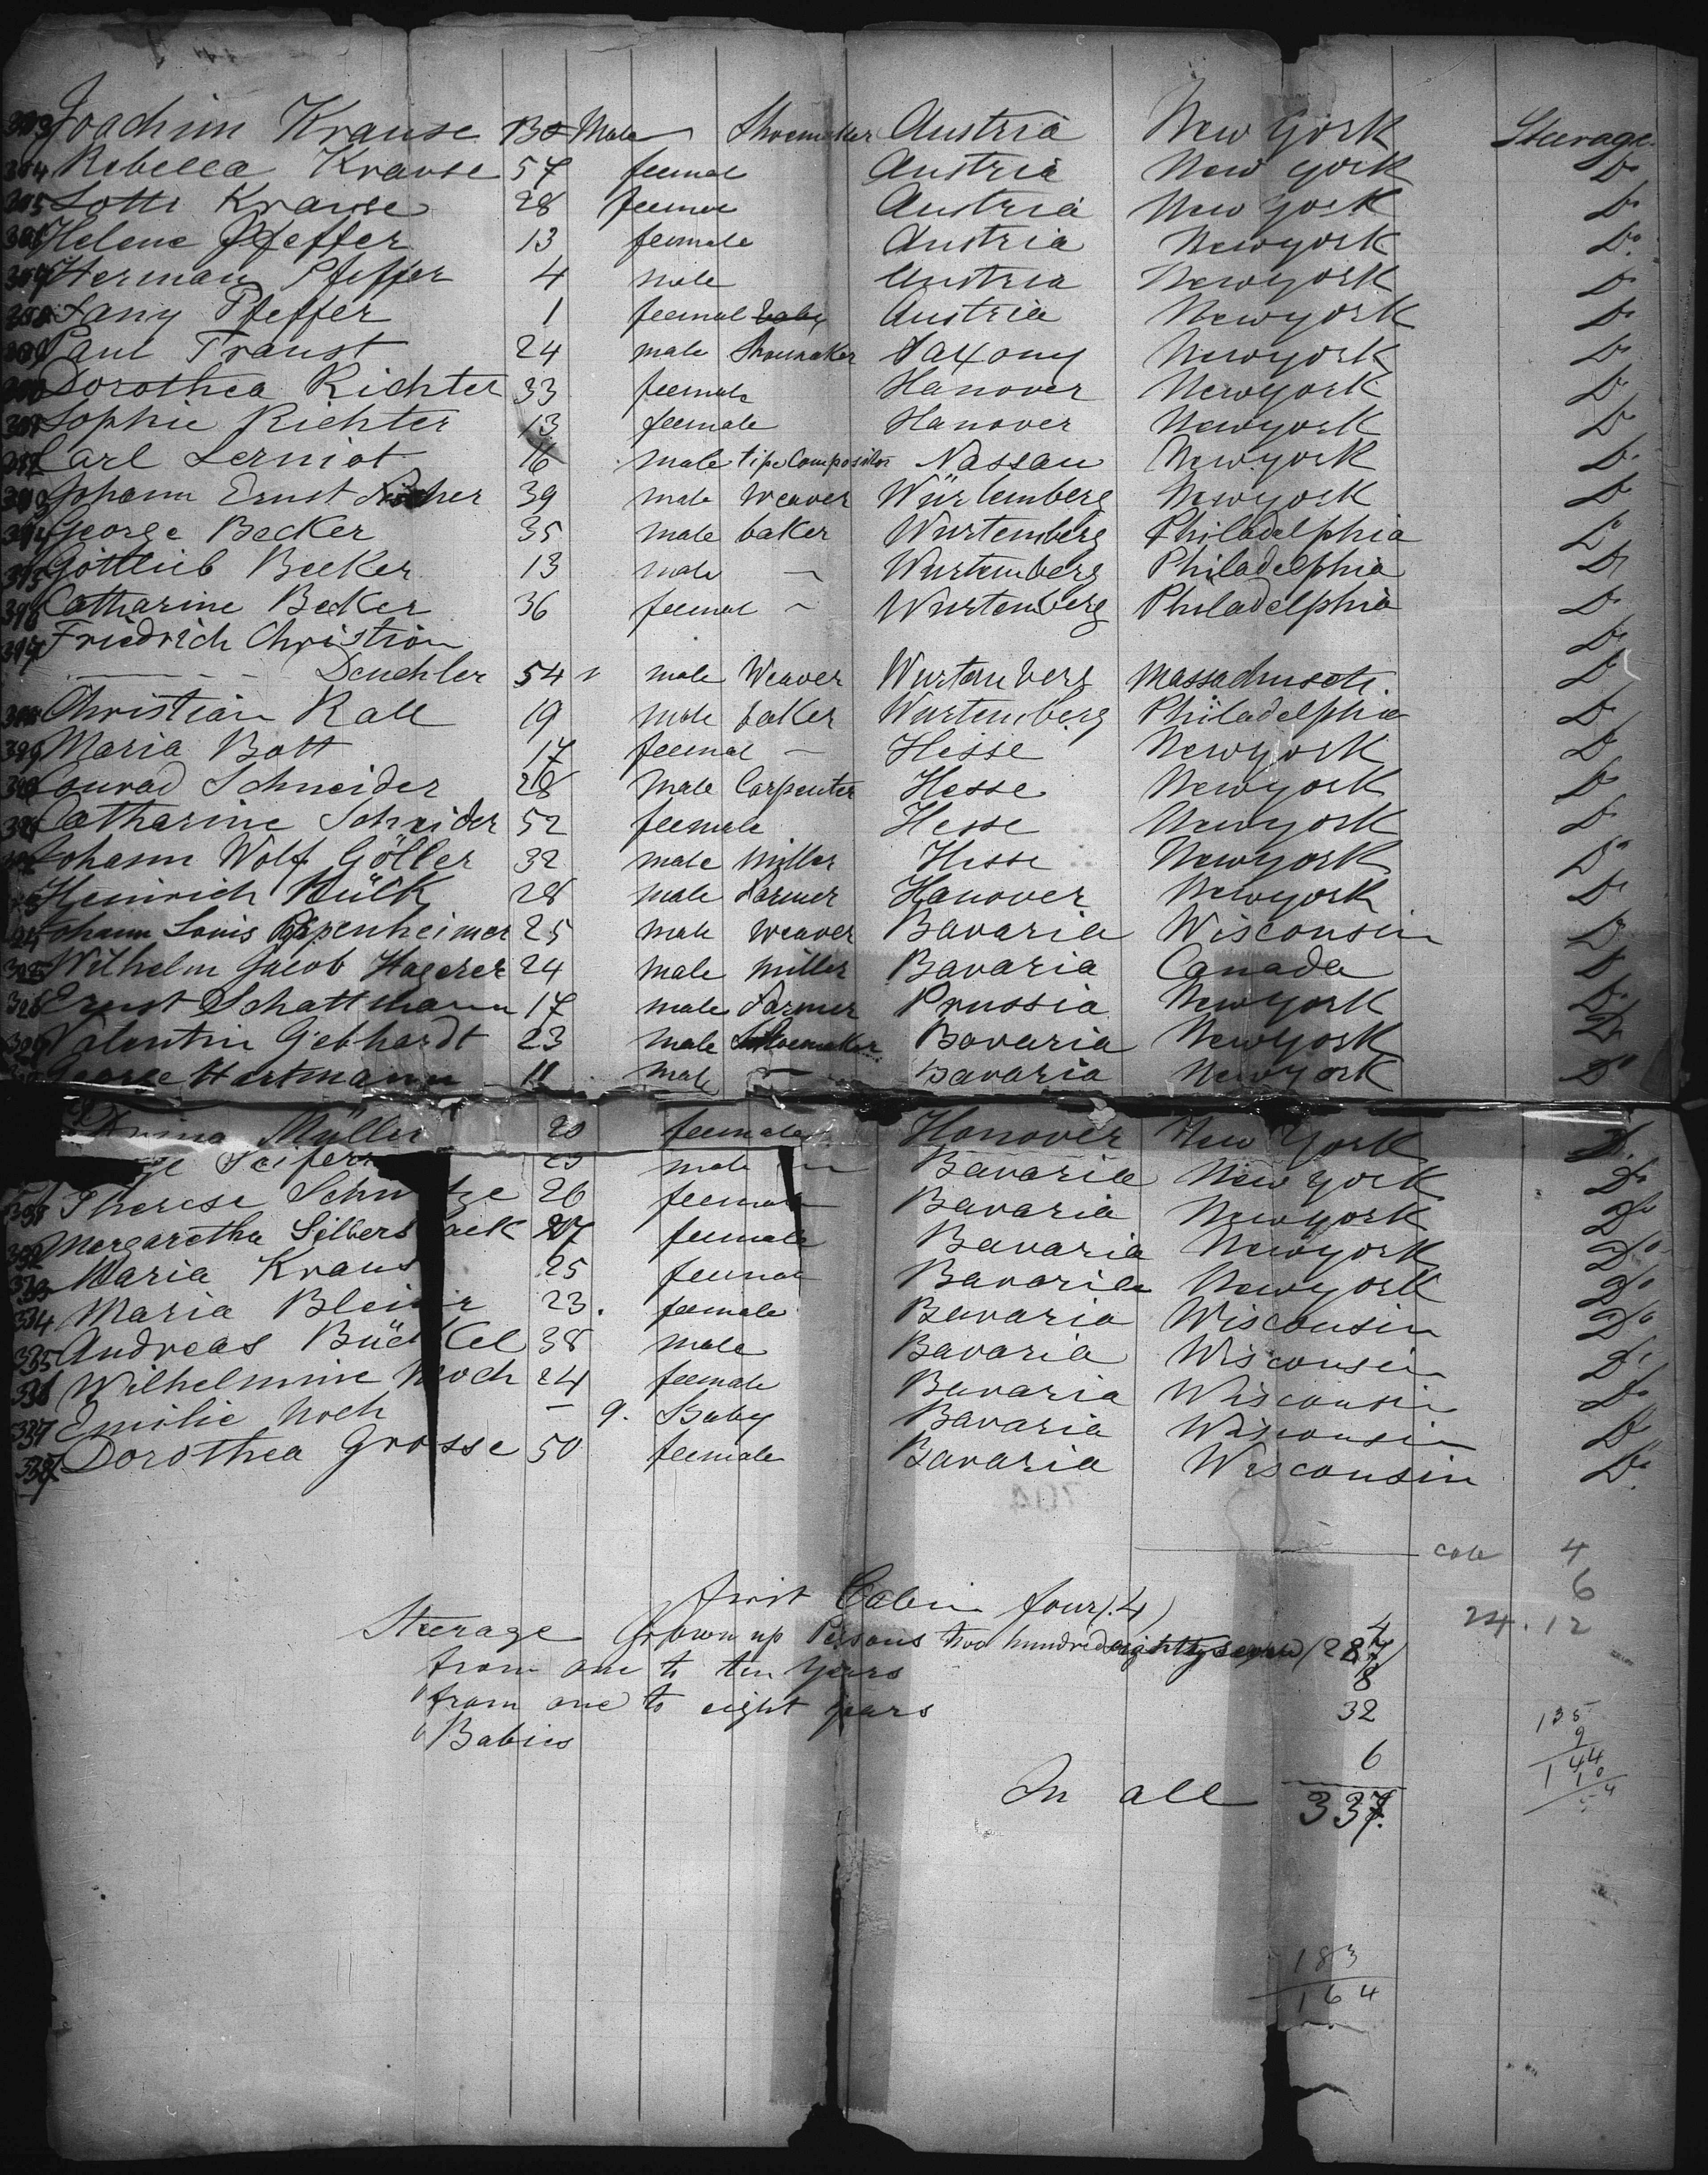 Joachim Krause Male Shoemaker Austria New York Steerage
Rebecca Krause 57 feemal Austria New york Do
Lotti Krause 28 Austria New York Do
Helene Pfeffer 13 feemale Austria Newyork Do
Herman Pfeffer 4 male Austria Newyork Do
Fany Pfeffer 1 feemal baby Austria Newyork Do
Paul Traust 24 male Shoemaker Saxony Newyork Do
Dorothea Richter 33 feemale Hanover Newyork Do
Sophie Richter 13 feemale Hanover Newyork Do
Carl Lerniot 16 male tipe Compositor Nassau Newyork Do
Johann Ernst 39 male Weaver Würtemberg Newyork Do
George Becker 35 male baker Wurtemberg Philadelphia Do
Gottlieb Becker 13 male — Wurtemberg Philadelphia Do
Catharine Becker 36 feemal — Wurtemberg Philadelphia Do
Friedrich Christian Do
Deuchler 54 male Weaver Wurtemberg Massachusets Do
Christian Rall 19 male baker Wurtemberg Philadelphia Do
Maria Bott 17 feemal — Hesse Newyork Do
Conrad Schneider 28 male Carpenter Hesse Newyork Do
Catharine Schneider 52 feemale Hesse Newyork Do
Johann Wolf Göller 32 male Miller Hesse Newyork Do
Heinrich 28 male Farmer Hanover Newyork Do
Johann Louis Papenheimer 25 male Weaver Bavaria Wisconsin Do
Wilhelm Jacob Hagerer 24 male Miller Bavaria Canada Do
Ernst Schattmann 17 male Farmer Prussia Newyork Do
Valentin Gebhardt 23 male Shoemaker Bavaria Newyork Do
George Hartmann 11 male — Bavaria Newyork Do
Müller 20 feemale Hanover New York Do
Seifer male Bavaria New York Do
Therese Schu tze 26 feemale Bavaria Newyork Do
Margaretha Silbers ack 27 feemale Bavaria Newyork Do
333 Maria Kraus 25 feemale Bavaria Newyork Do
334 Maria 23. feemale Bavaria Wisconsin Do
335 Andreas Bückel 38 male Bavaria Wisconsin Do
336 Wilhelmine Moch 24 feemale Bavaria Wisconsin Do
337 Emilie Moch — 9. Baby Bavaria Wisconsin Do
338 Dorothea Grosse 50 feemale Bavaria Wisconsin Do
4
6
24.12
first Cabin four (.4) 4
Steerage Grown up Persons two hundred eighty seven (287)
from one to ten years 8
from one to eight years 32
Babies 6
In all 337.
135
9
144
10
183
164